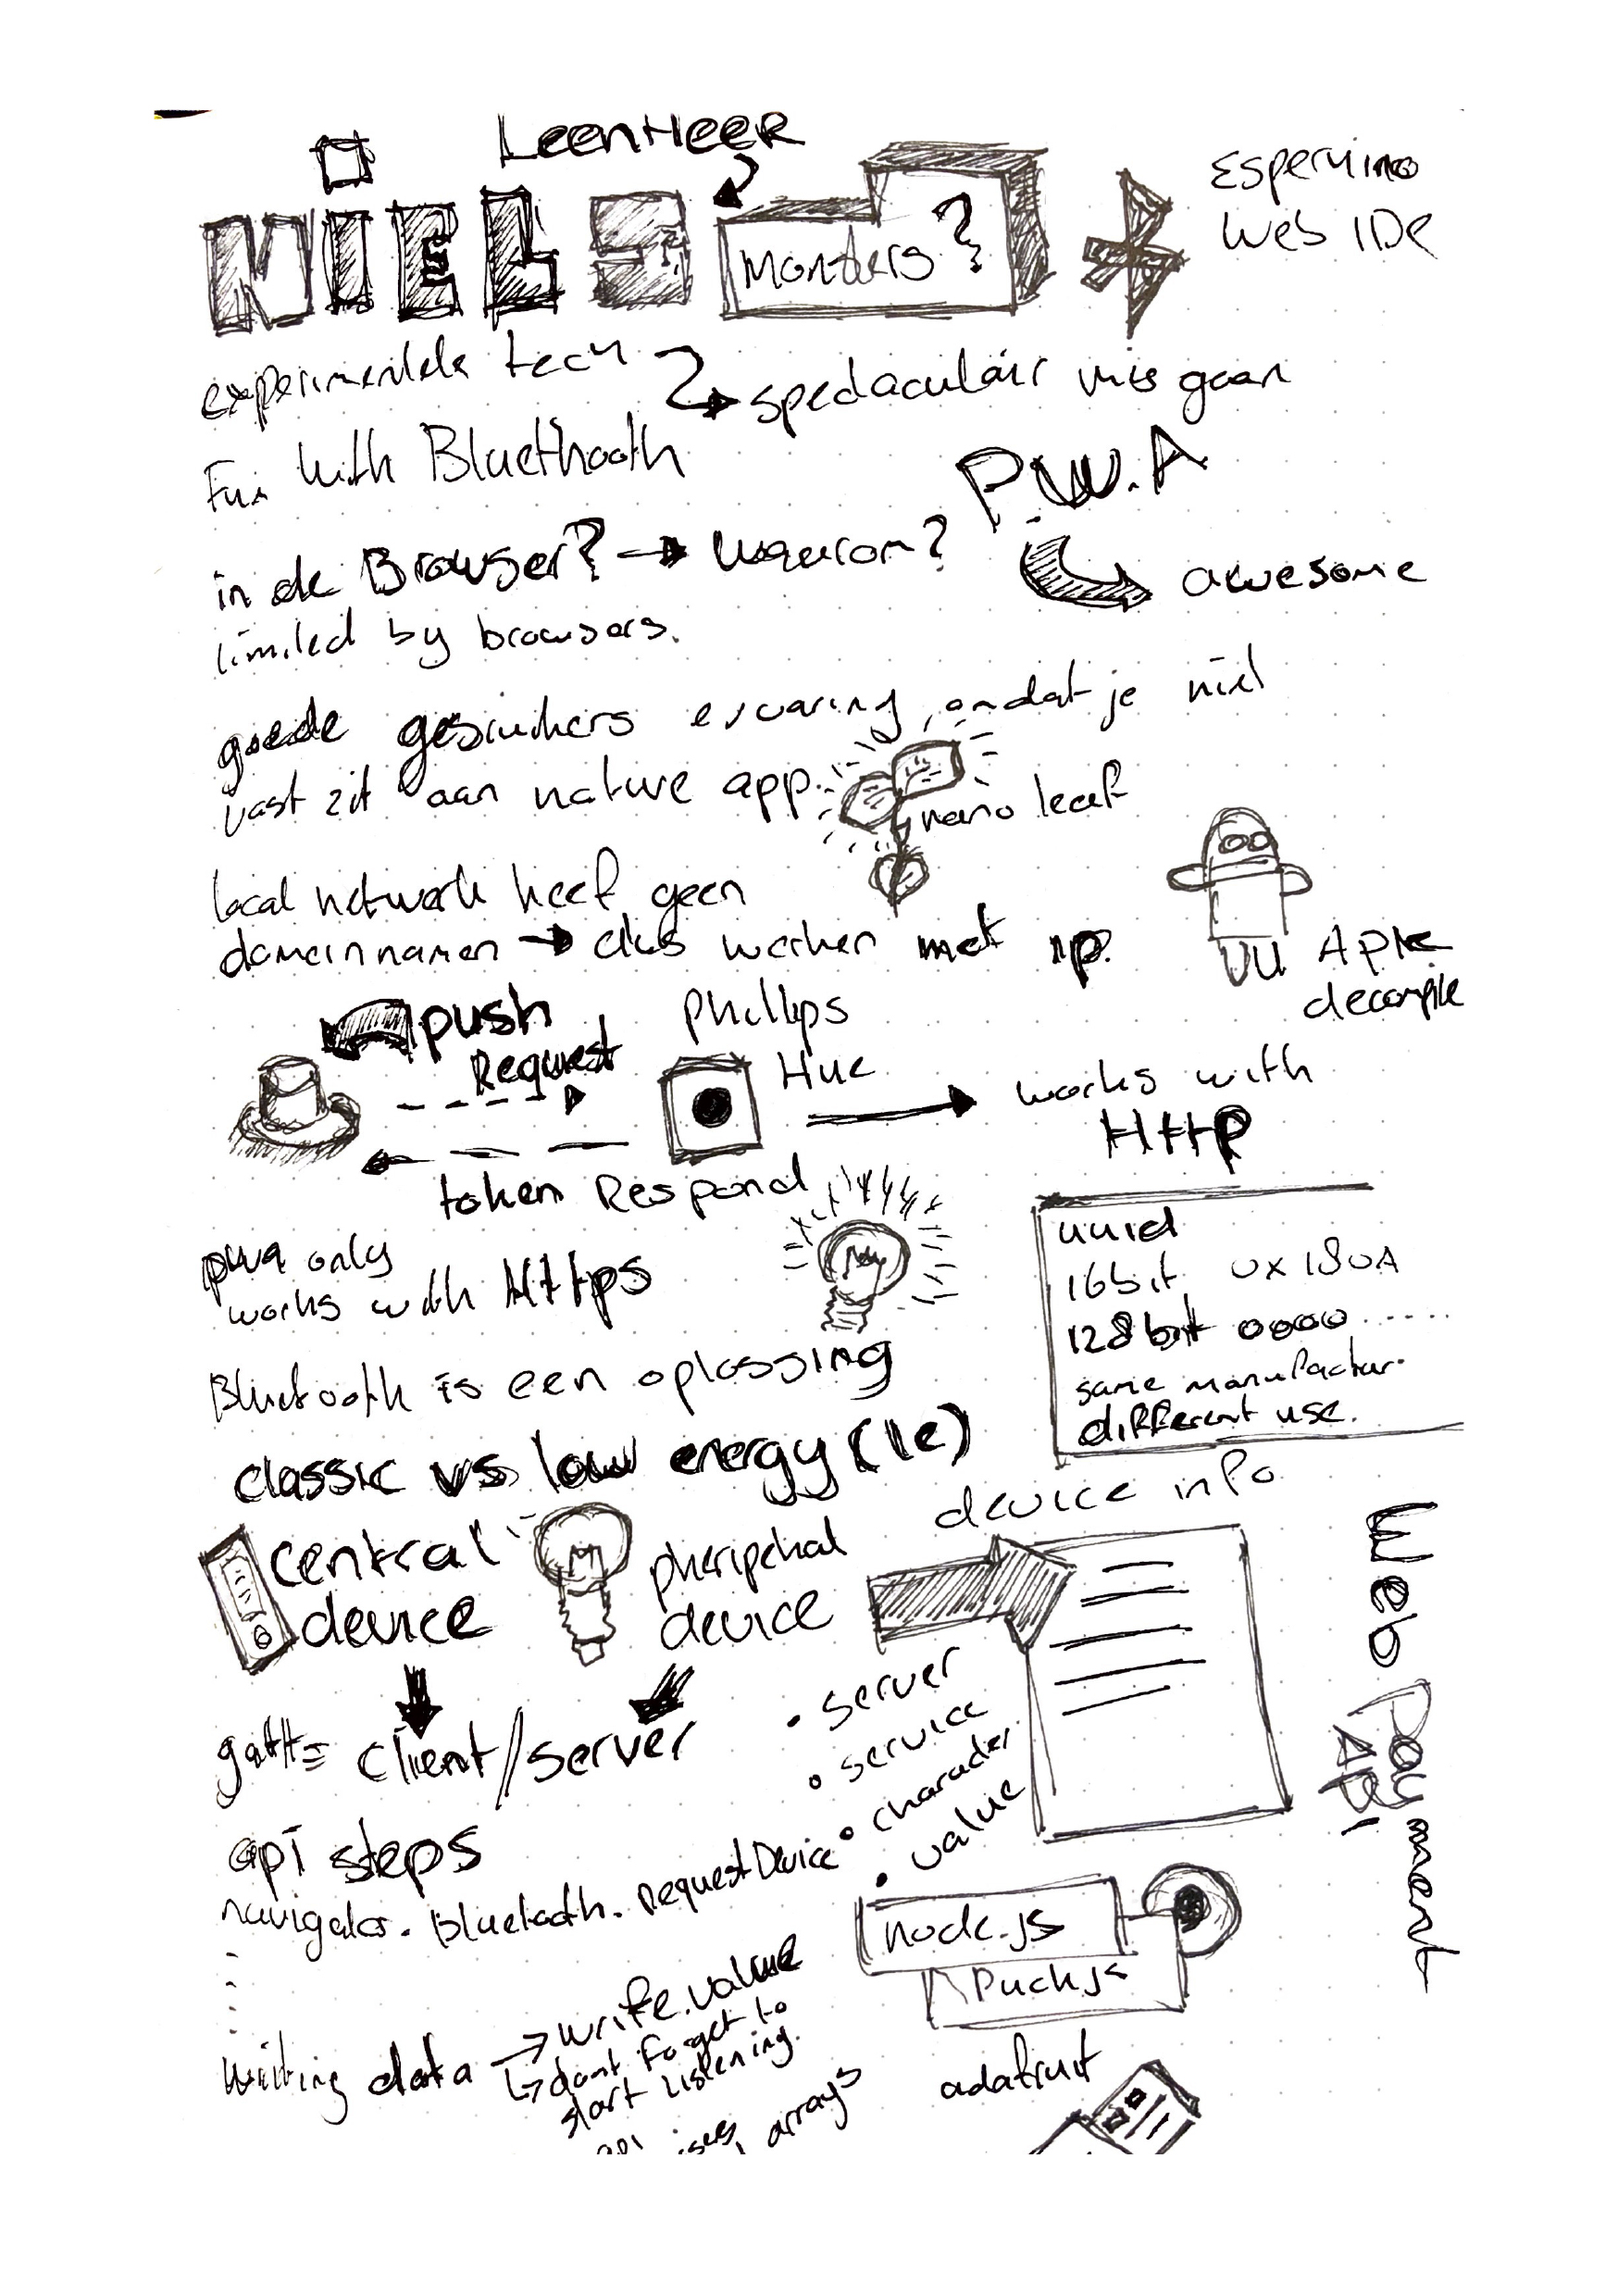 LeenHeer
NIELS
Monsters ?
Esperuino
Web IDe
experimentele tech
spectaculair mis gaan
Fun with Bluethooth
P.W.A
in de Browser? → Waarom?
awesome
limited by browsers.
goede gebruikers ervaring, omdat je niet
vast zit aan native app.
nano leaf
local network heef geen
domeinnamen → dus werken met ip.
decompile
push
Request
Phillips
Hue
works with
HttP
token Respond
pwa only
works with Https
uuid
16bit 0x180A
128bit 0000 ......
same manufactur.
different use.
Bluetooth is een oplossing
classic vs low energy (le)
device info
central
device
pheripehal
device
Web Payment
API
gatt = client/server
• server
• service
• character
• value
api steps
navigator. Bluetooth. RequestDevice
node.js
Puck.js
writing data → write.value
↳ dont forget to
start listening.
arrays
adafruit